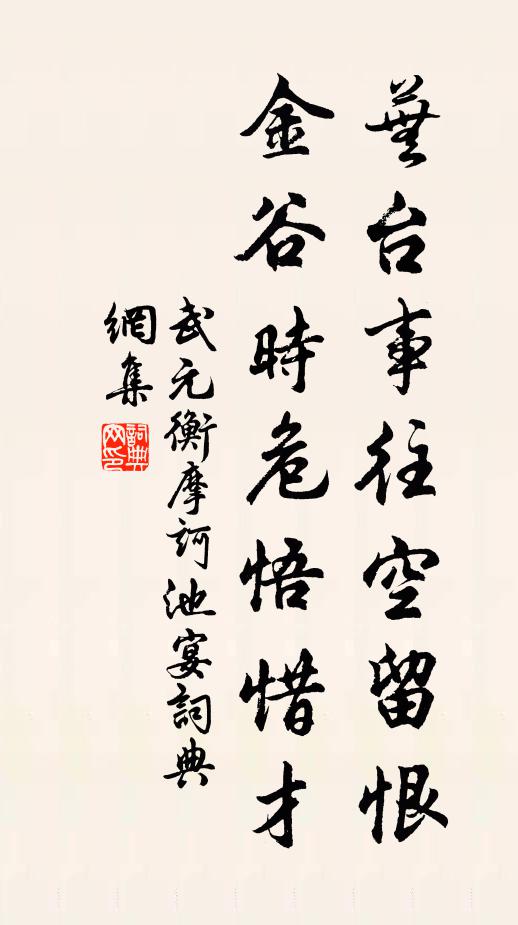 蕪台事往空留恨
金谷時危悟惜才
武元衡摩訶池宴詞典
網集
詞典
网印